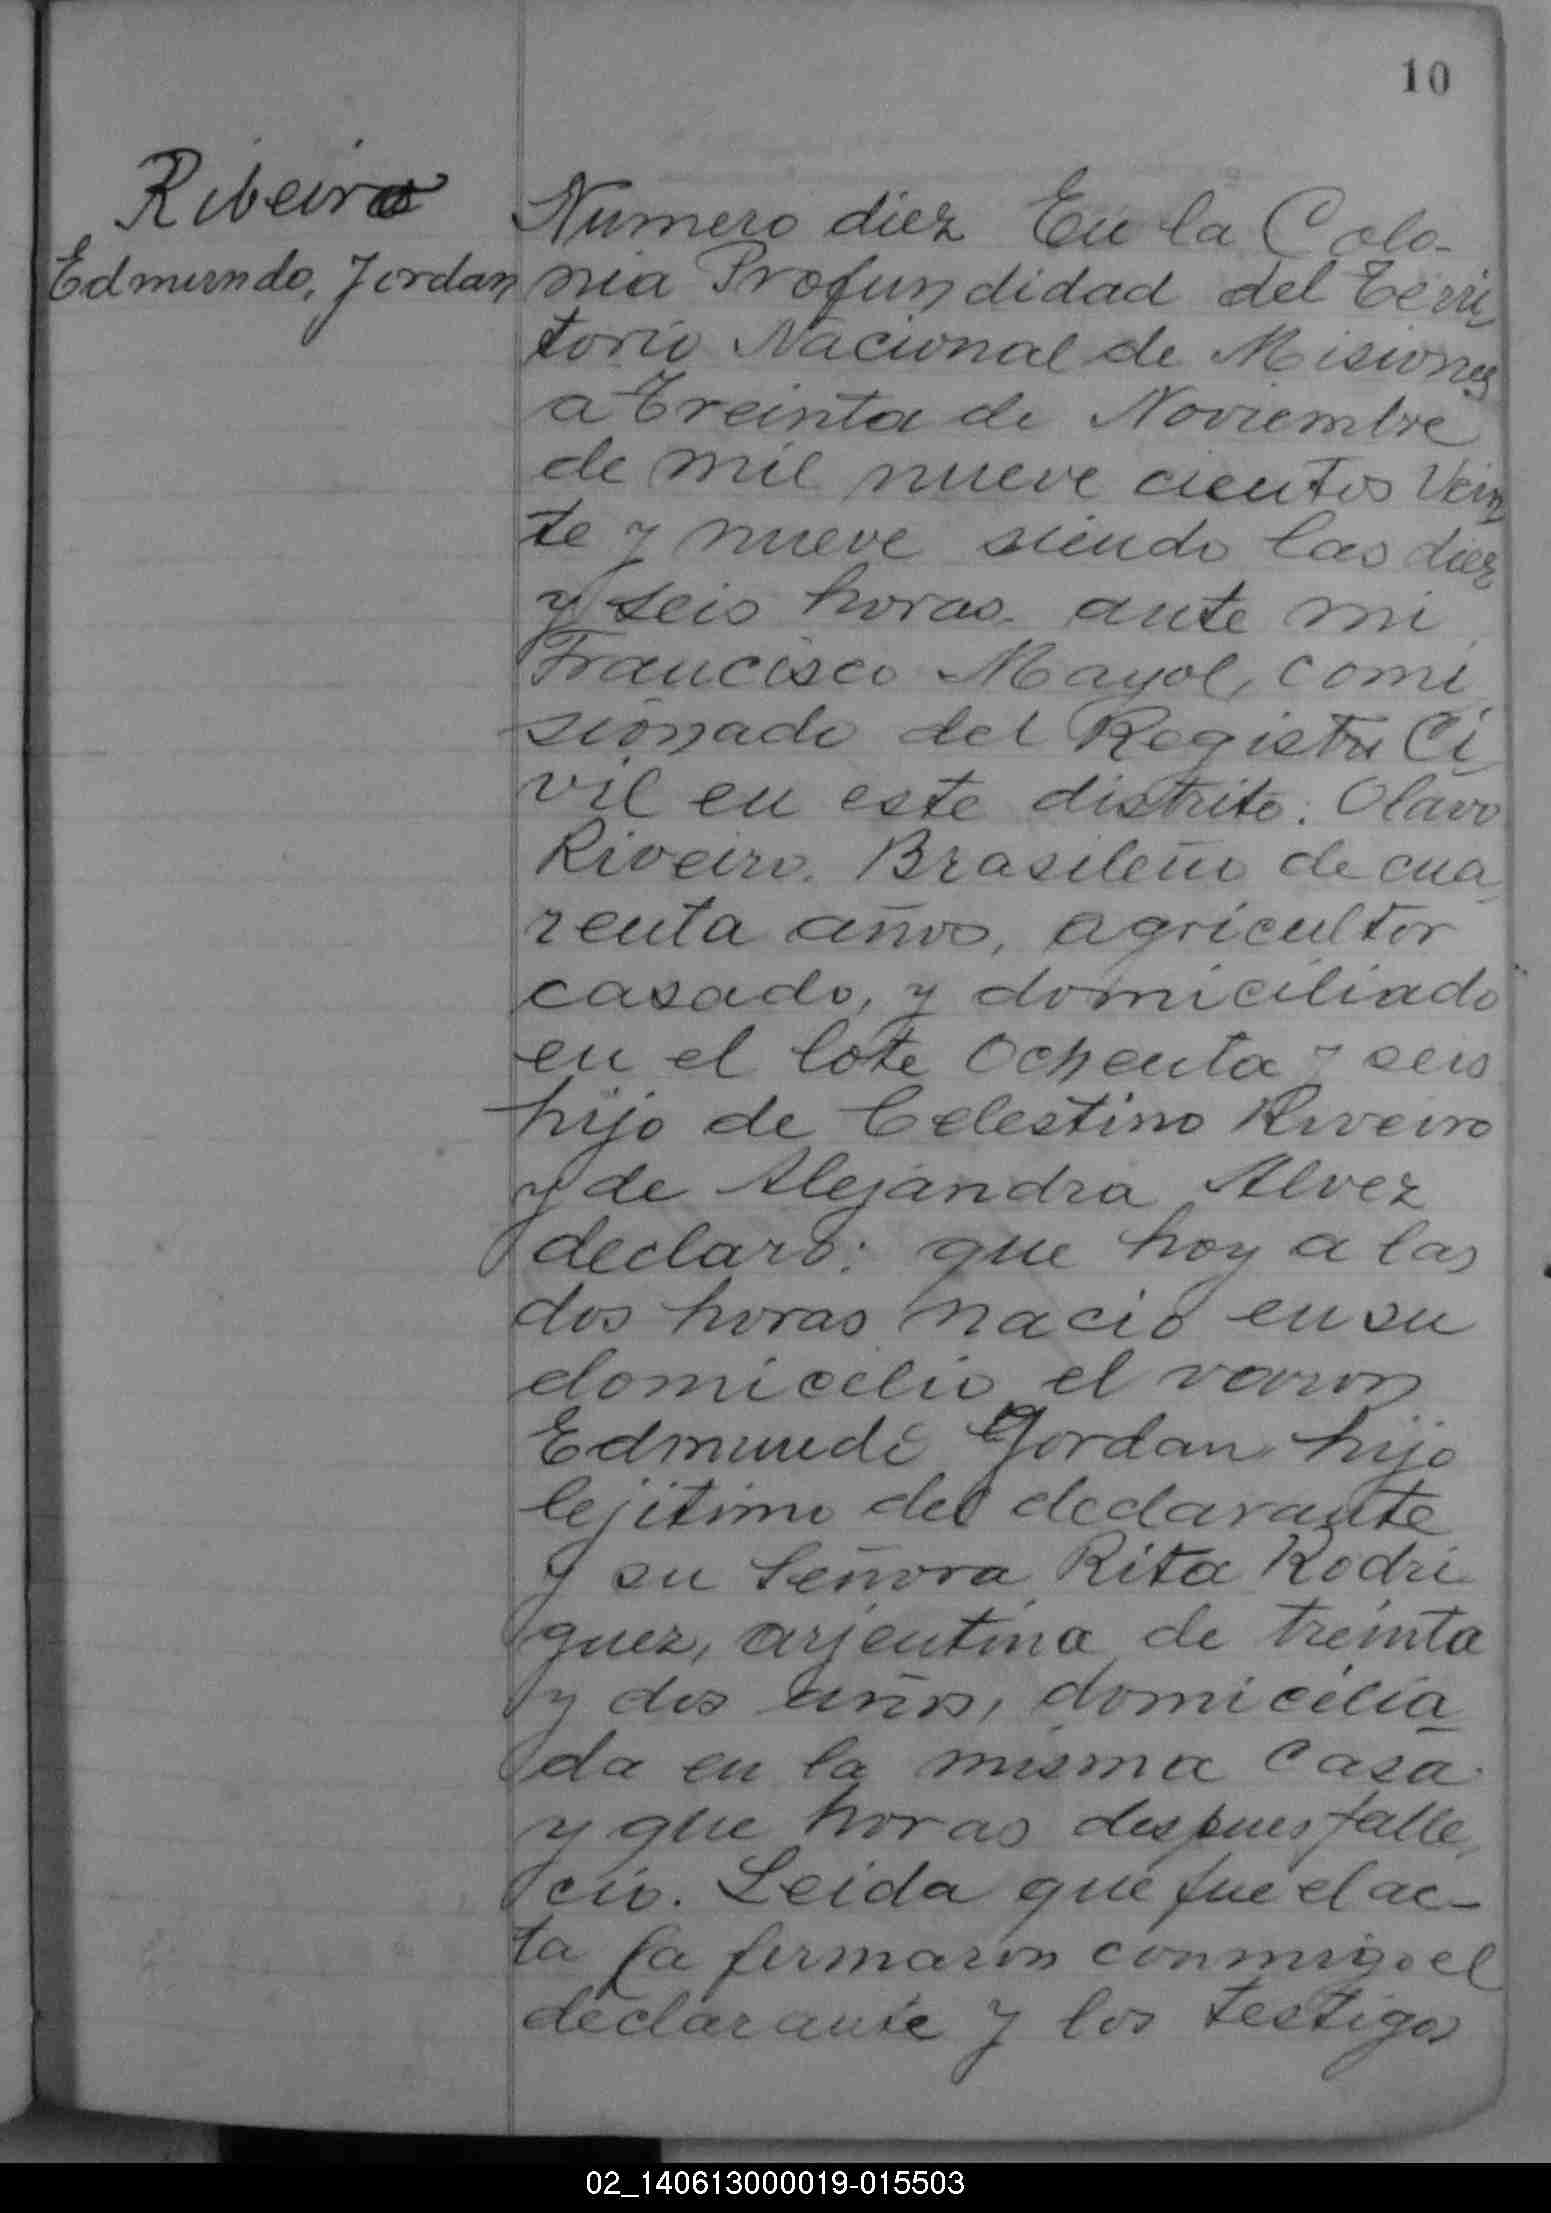 10
Ribeiro
Edmundo, Jordan
Numero diez En la Colo-
nia Profundidad del Terri
torio Nacional de Misiones
a Treinta de Noviembre
de mil nueve cientos Vein
te y nueve siendo las diez
y seis horas. ante mi
Francisco Mayol, comi
sionado del Registro Ci
vil en este distrito: Olavo
Riveiro. Brasileño de cua
renta años, agricultor
casado, y domiciliado
en el lote Ochenta y seis
hijo de Celestino Riveiro
y de Alejandra Alvez
declaro: que hoy a las
dos horas nacio en su
domicilio el varon
Edmundo Jordan hijo
lejitimo del declarante
y su Señora Rita Rodri
guez, arjentina de treinta
y dos años, domicilia
da en la misma casa
y que horas despues falle,
cio. Leida que fue el ac-
ta la firmaron conmigo el
declarante y los testigos
02_140613000019-015503